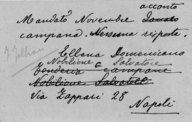 acconto
Mandato Novembre
campana. Nessuna
Ellena Domenicano
Nobilione Salvatore
Tenderie campane
Nobilione Salvatore
Via Zappari 28
Napoli